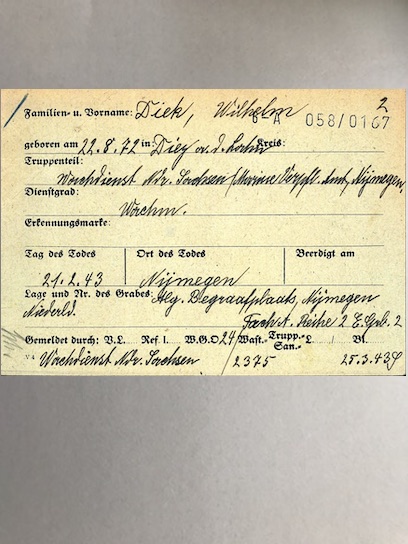 2
Familien- u. Vorname: Diek, Wilhelm
6 A 058/0167
geboren am 22.8.72 in: Diez a. d. Lahn Kreis:
Truppenteil:
Wachdienst Ndr. Sachsen/Marine Verpfl. Amt, Nijmegen
Dienstgrad:
Wachm.
Erkennungsmarke:
Tag des Todes Ort des Todes Beerdigt am
21.2.43 Nijmegen
Lage und Nr. des Grabes: Alg. Begraafplaats, Nijmegen
Niederld. Reihe 2 E. Grb. 2
Gemeldet durch: V.L. Ref I. W.G.O 24 Wast. Trupp. San. L. / Vl.
V4 Wachdienst Ndr. Sachsen /2375 25.3.43